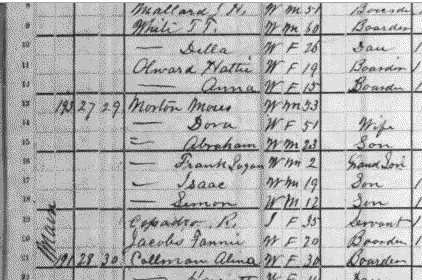 8 Mallard J. H. W M 51 Boarder
9 White T. F. W M 60 Boarder
10 — Della W F 26 Dau 1
11 Alward Hattie W F 19 Boarder 1
12 — Anna W F 15 Boarder 1
13 193 27 29 Morton Moses W M 53
14 — Dora W F 51 Wife
15 — Abraham W M 23 Son
16 — Frank Logan W M 2 Grand Son
17 — Isaac W M 19 Son 1
18 — Simon W M 12 Son 1
19 R. F 35 Servant 1
20 Jacobs Fannie W F 20 Boarder 1
21 191 28 30 Coleman Alma W F 30 Boarder
Main